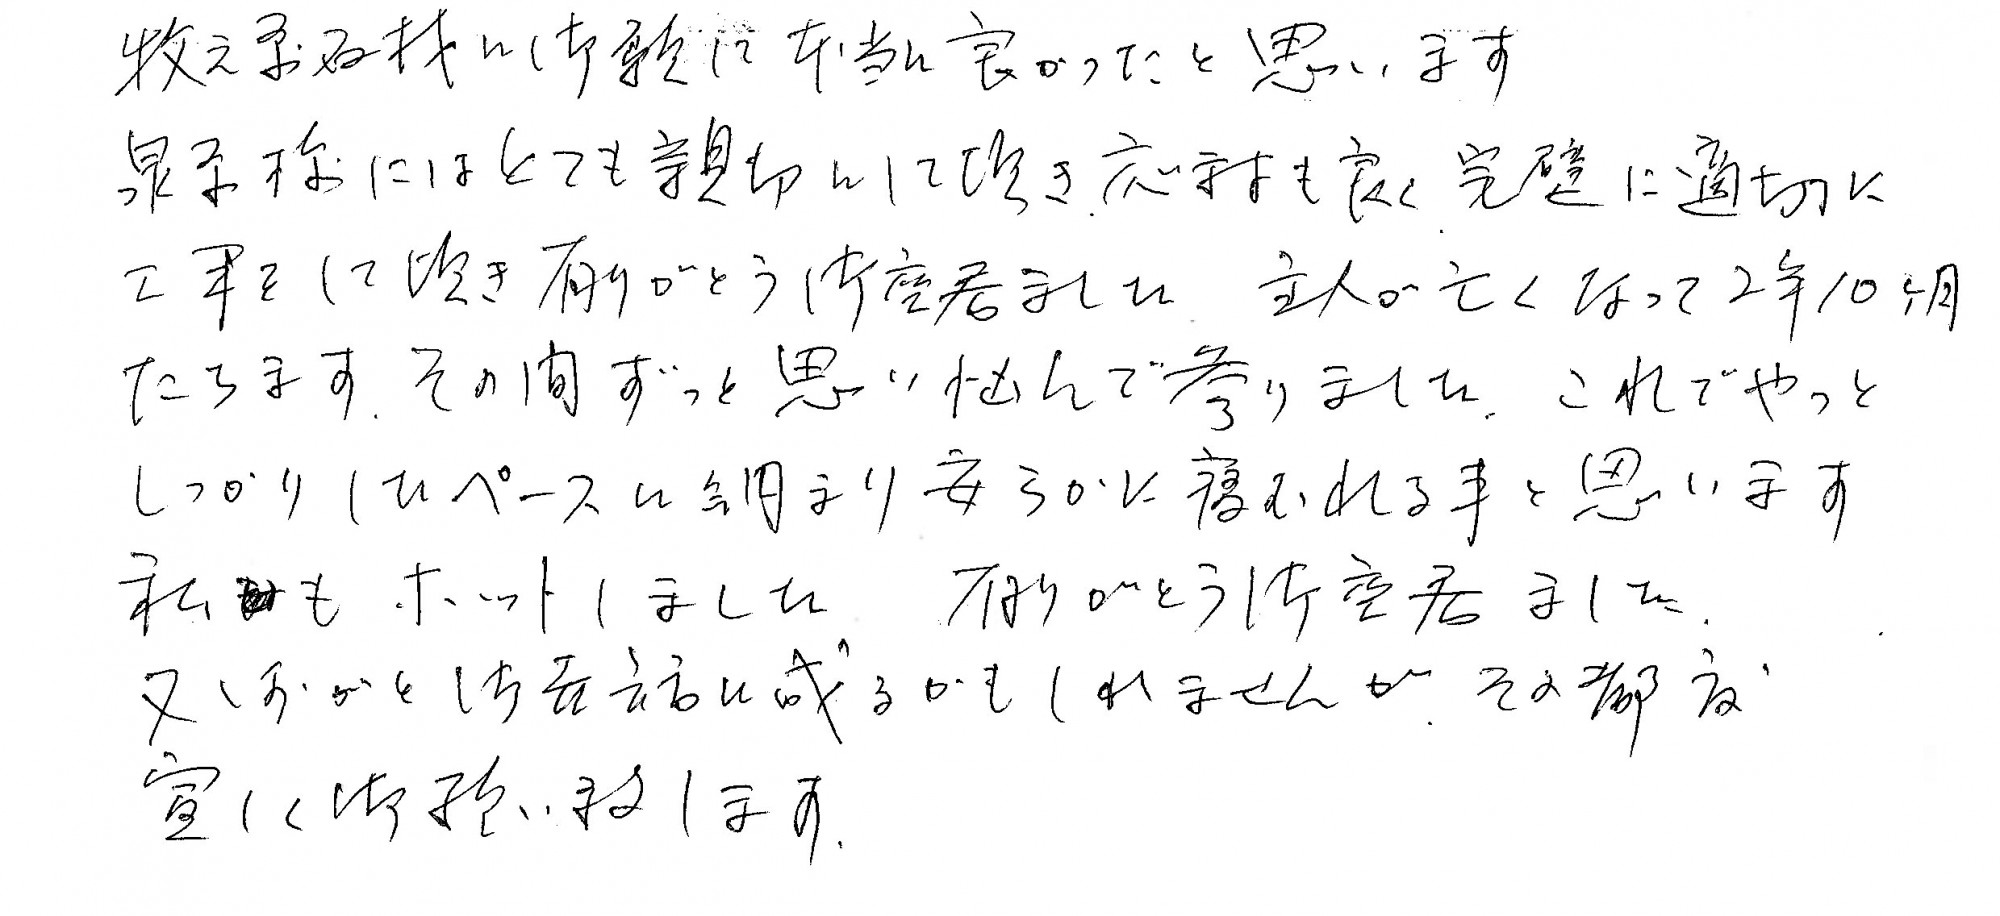 牧之原石材に御願いして本当に良かったと思います
泉原様にはとても親切にして頂き、応対も良く、完璧に適切に
工事をして頂き有りがとう御座居ました 主人が亡くなって2年10ヶ月
たちます。その間ずっと思い悩んで参りました。これでやっと
しっかりしたペースに納まり安らかに寝むれる事と思います
私も ホットしました 有りがとう御座居ました。
又しおがと御世話に成るかもしれませんが、その都度
宜しく御願い致します。